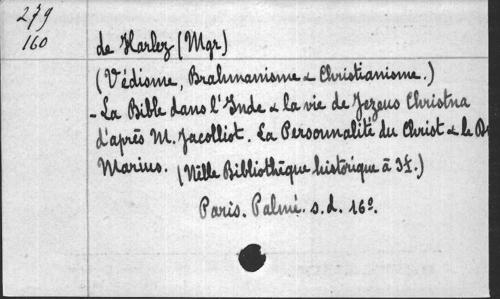 279
160
de Harlez (Mgr)
(Védisme, Brahmanisme & Christianisme.)
- La Bible dans l'Inde & la vie de Jezeus Christna
d'après M. Jacolliot. La Personnalité du Christ & le
Marius. (Nelle Bibliothèque historique à 3f.)
Paris. Palmé. s.d. 16º.